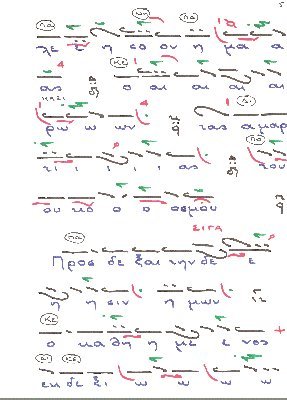 λε ε η σο ον η μα α
ας ο αι αι αι αι
ρω ω ων τας αμαρ
τι ι ι ι ι ας του
ου κο ο ο σμου
ΣΙΓΑ
Προσ δε ξαι την δε ε
η η σιν η μων
ο κα θη η με ε νος
εκ δε ξι ω ω ω ω